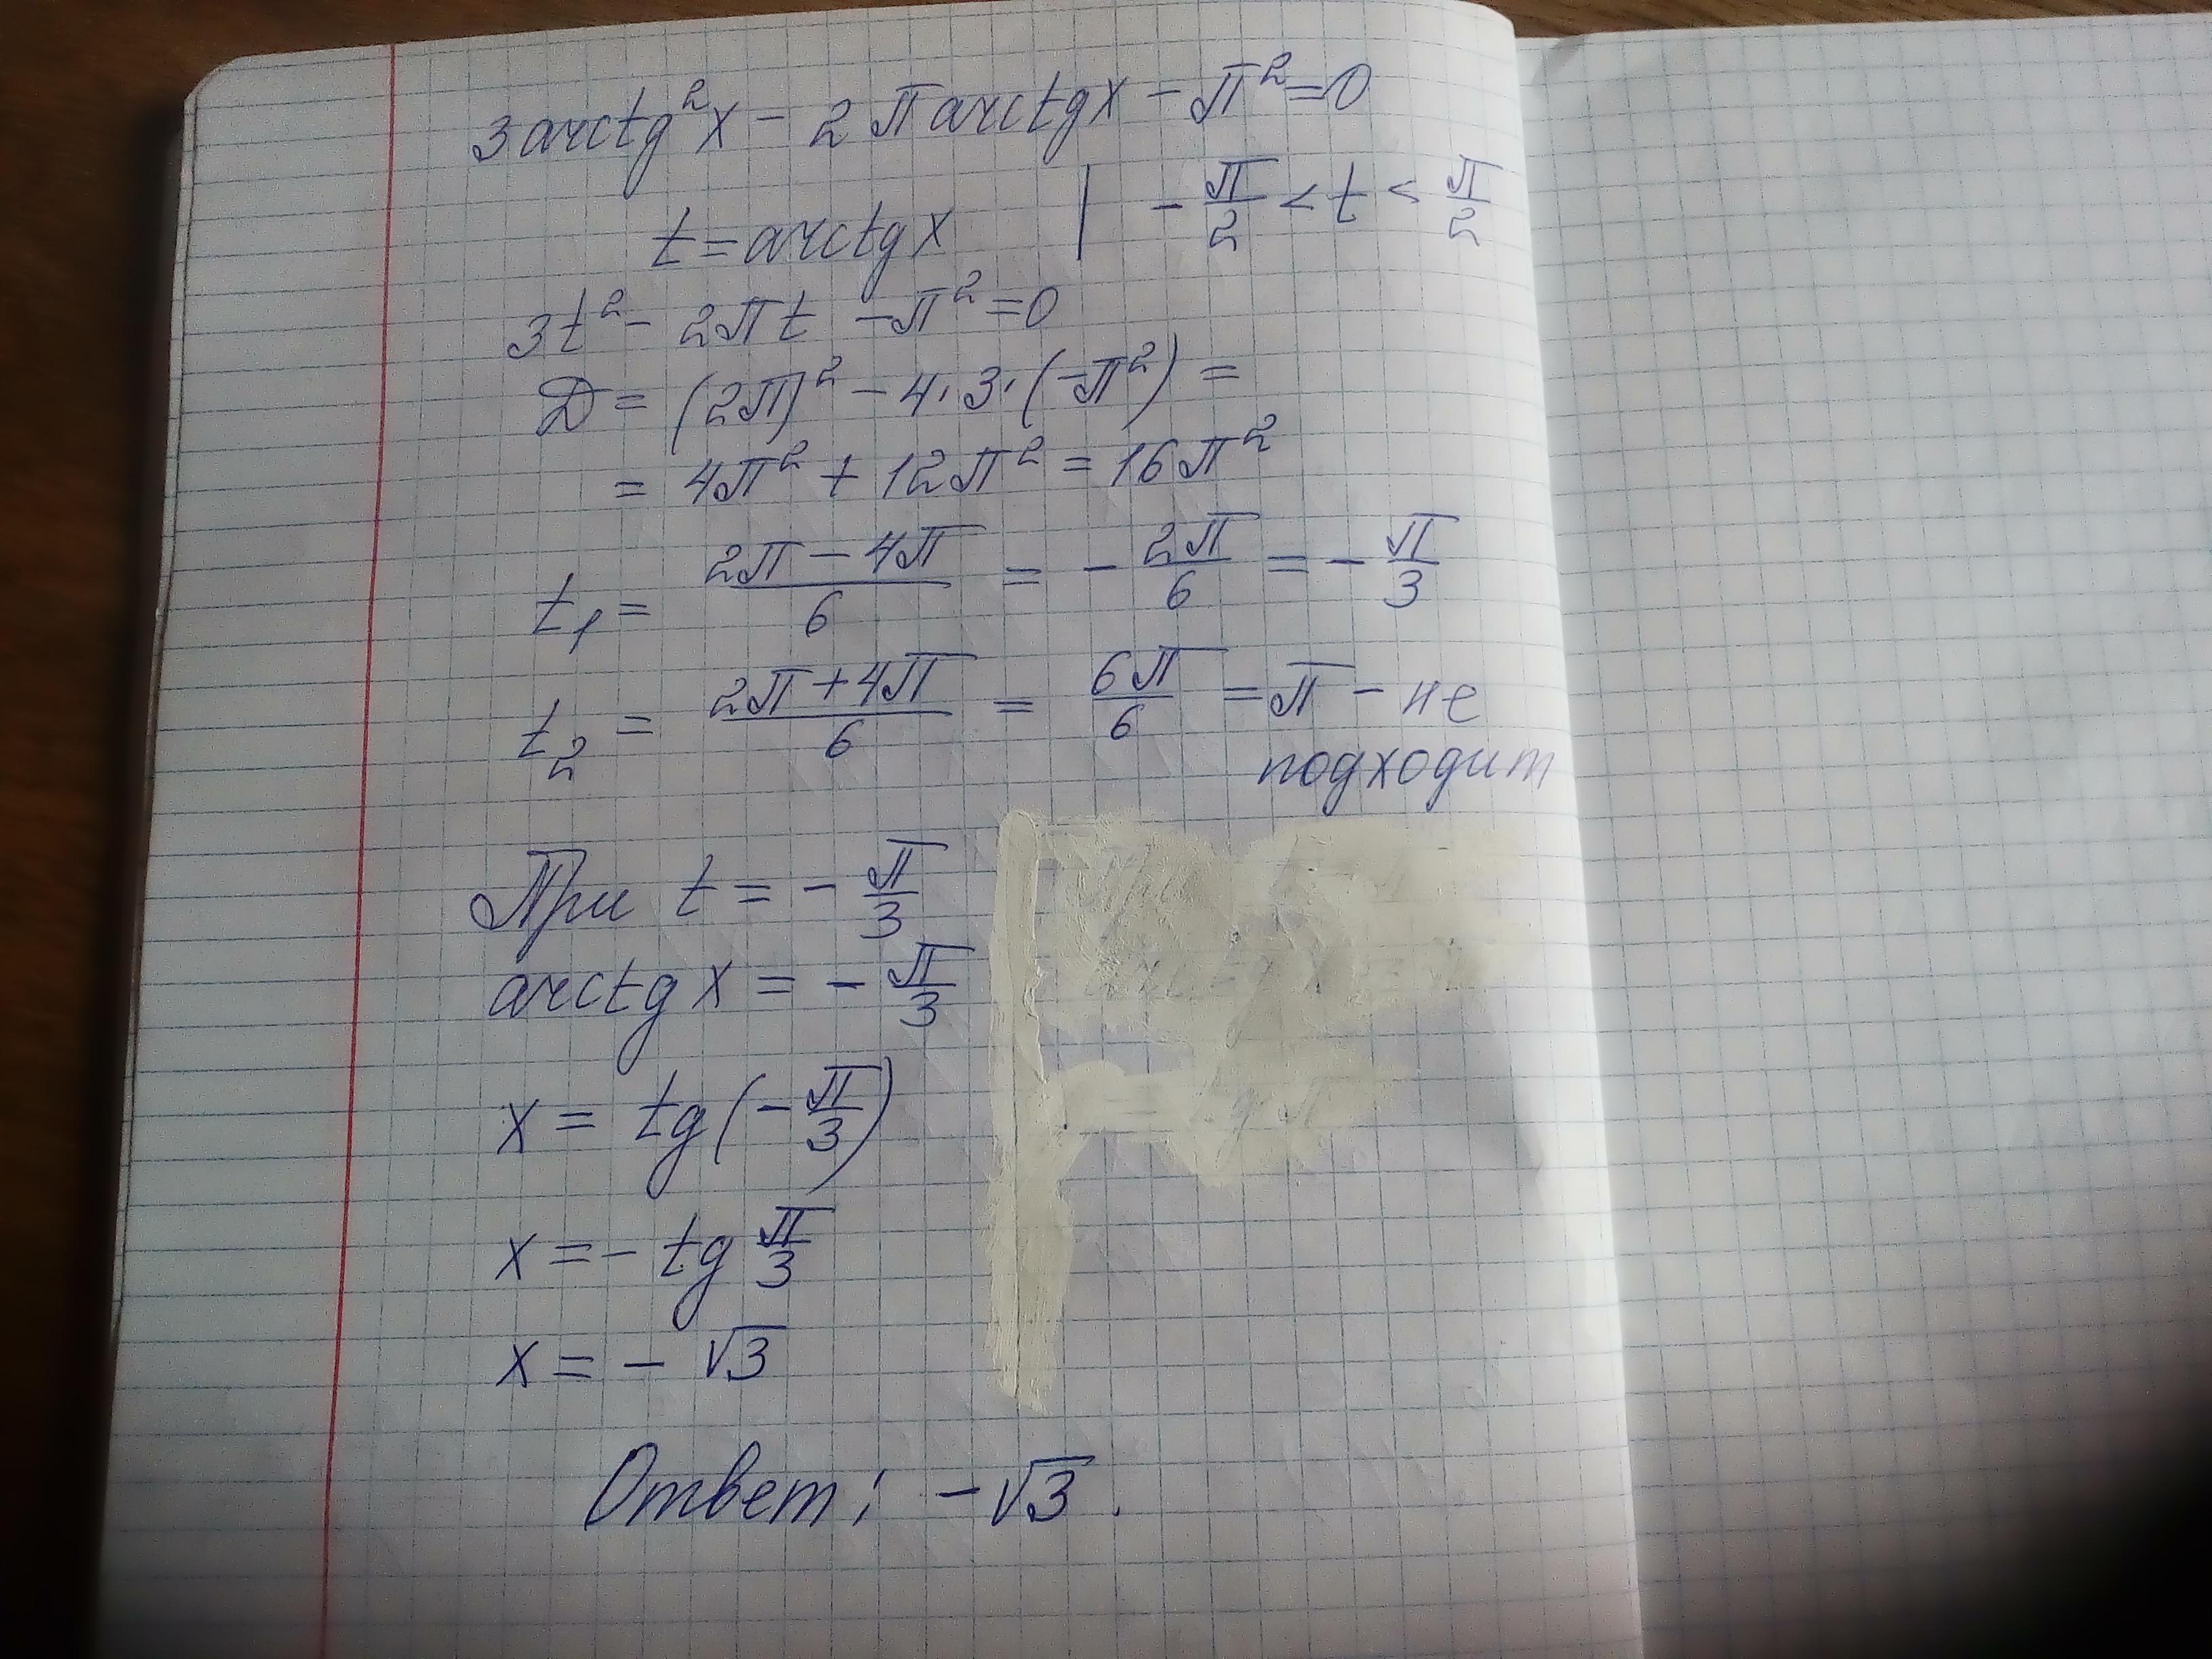 3 arctg²x − 2π arctgx − π² = 0
t = arctgx | −π/2 < t < π/2
3t² − 2πt − π² = 0
D = (2π)² − 4·3·(−π²) =
= 4π² + 12π² = 16π²
t₁ = (2π − 4π)/6 = − 2π/6 = − π/3
t₂ = (2π + 4π)/6 = 6π/6 = π − не
подходит
При t = − π/3
arctg x = − π/3
x = tg(− π/3)
x = − tg π/3
x = − √3
Ответ: − √3.